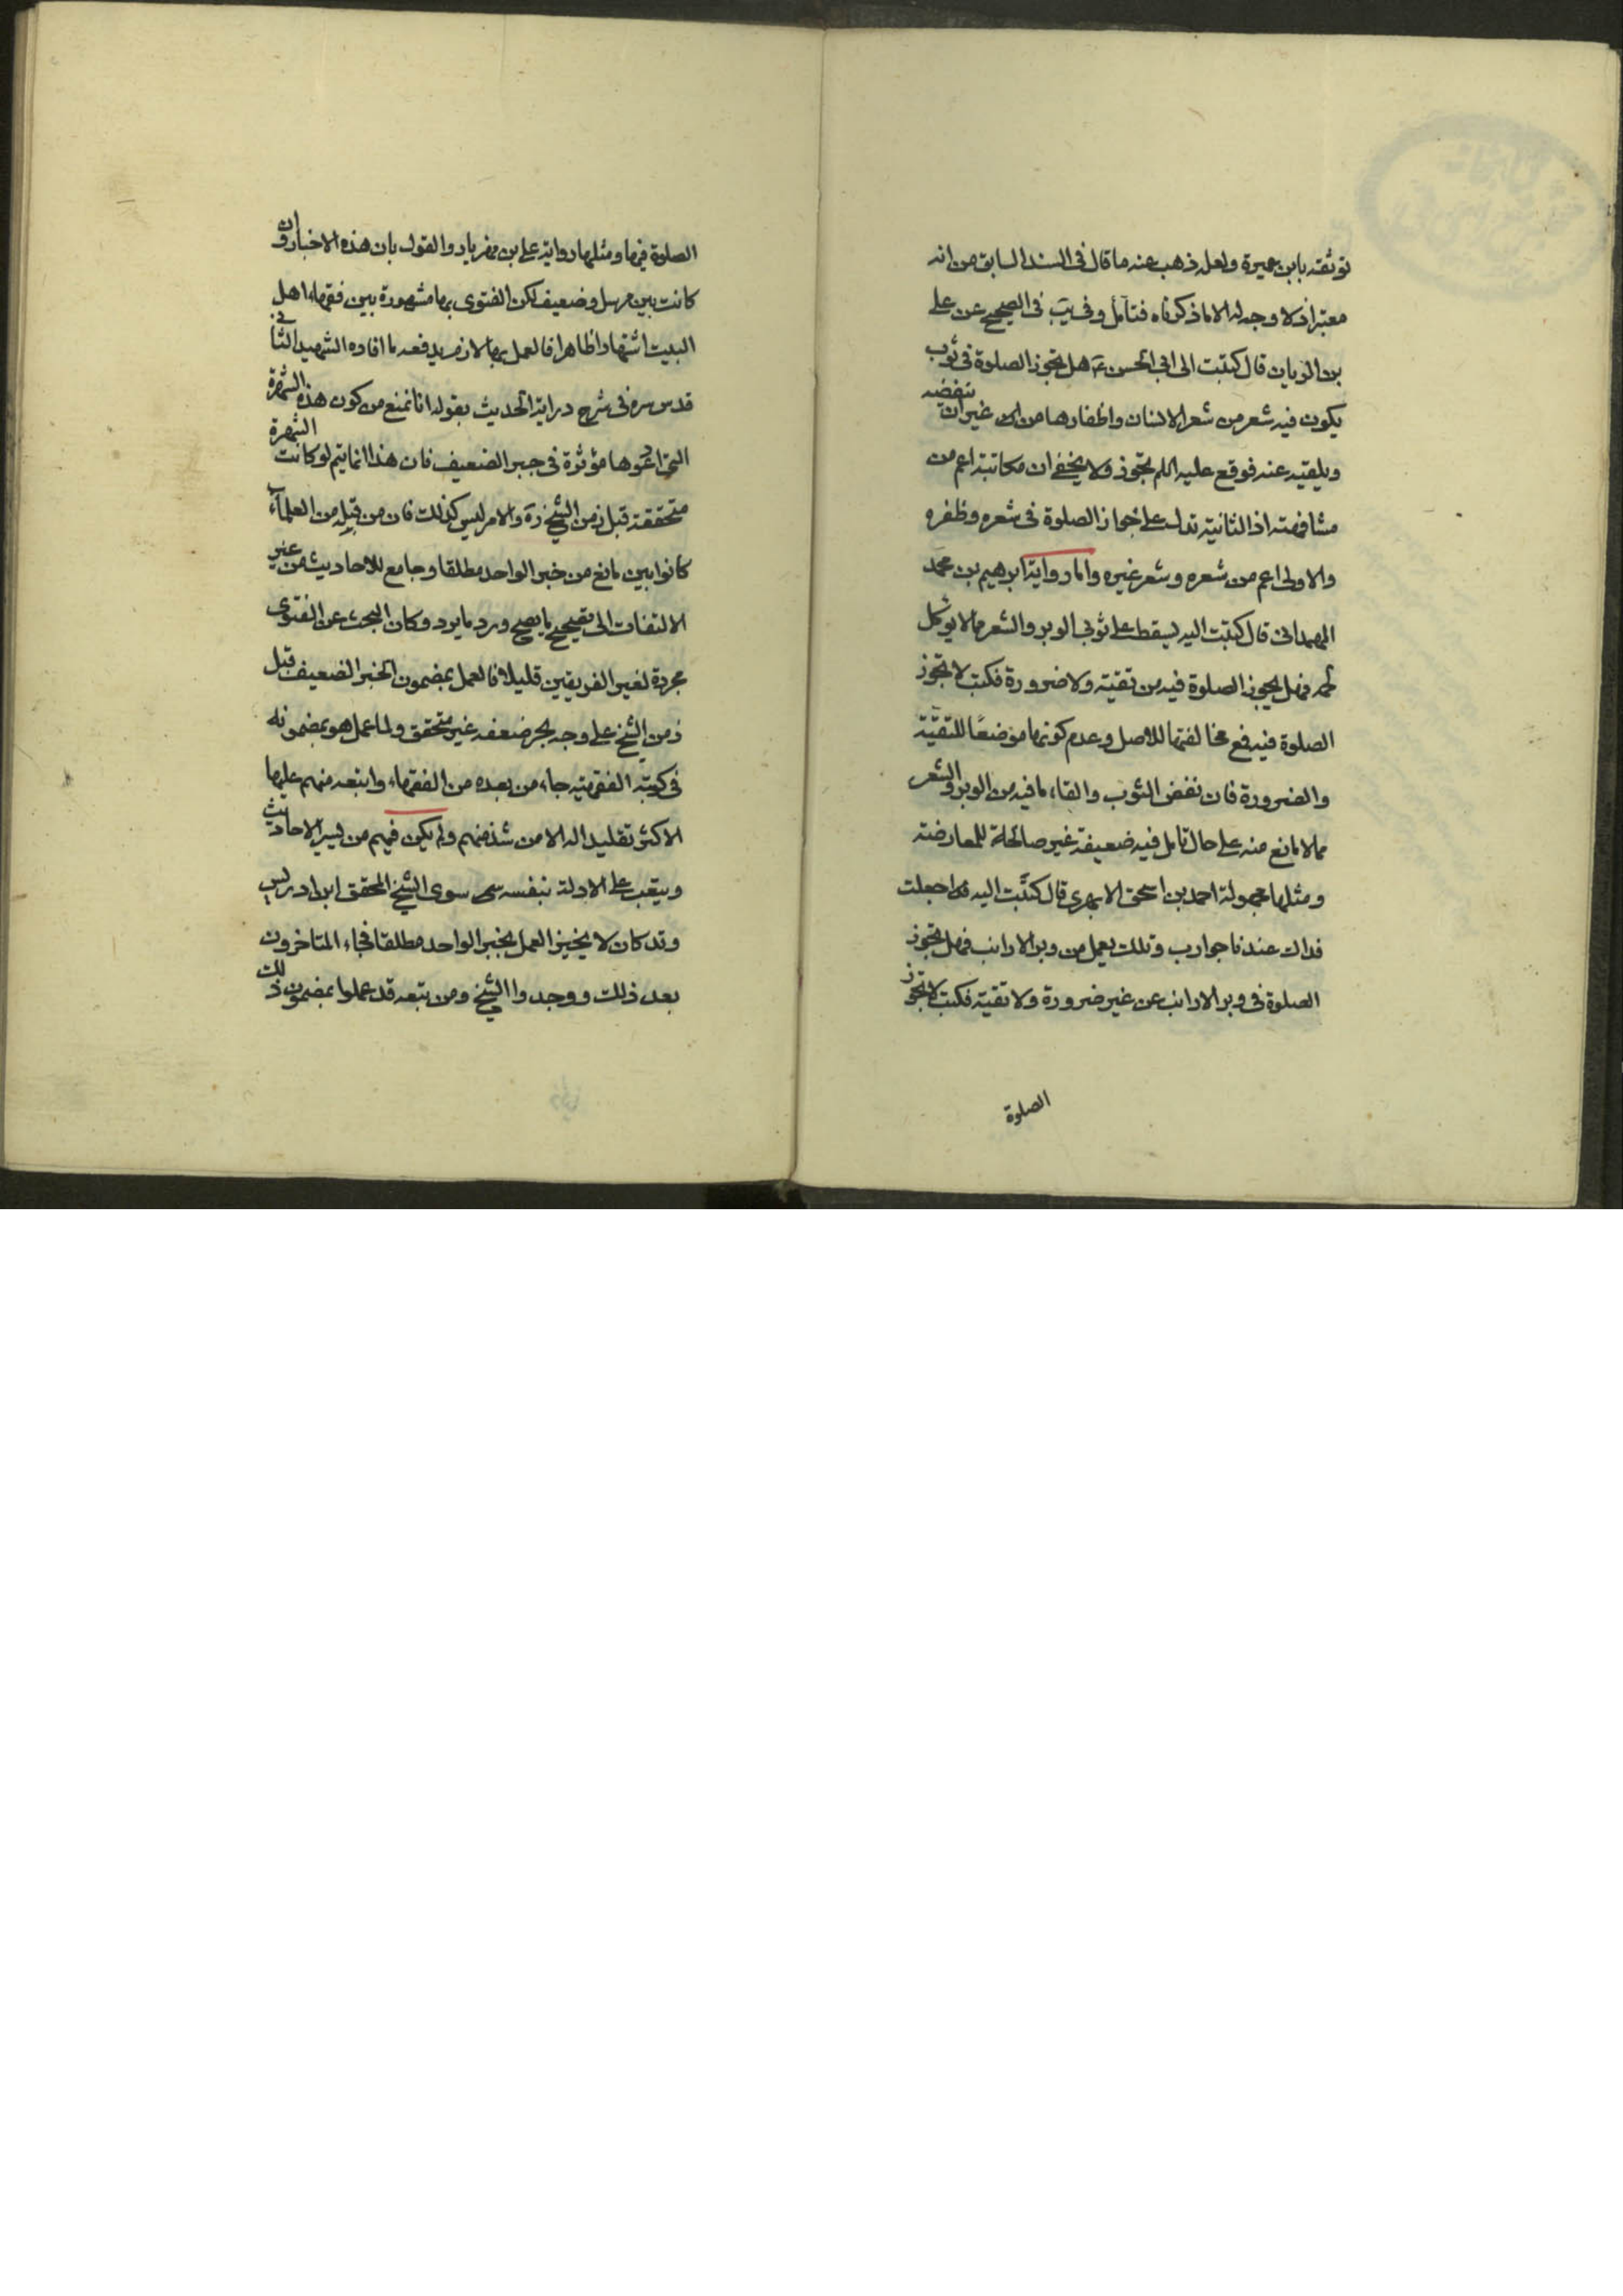 توثقه بابن عميرة ولعله ذهب عنه ما قال في السند السابق من انه
معتبر اذ لا وجه له الا ما ذكرناه فتأمل وفي يب في الصحيح عن علي
بن الريان قال كتبت الى ابي الحسن ع هل تجوز الصلوة في ثوب
يكون فيه شعر من شعر الانسان واظفاره من غير ان ينفضه
ويلقيه عنه فوقع عليه السلم تجوز ولا يخفى ان مكاتبته اعم من
مشافهته اذ الثانية تدل على جواز الصلوة في شعره وظفره
والاولى اعم من شعره وشعر غيره واما رواية ابرهيم بن محمد
الهمداني قال كتبت اليه يسقط على ثوبي الوبر والشعر مما لا يؤكل
لحمه فهل يجوز الصلوة فيه من تقية ولا ضرورة فكتب لا تجوز
الصلوة فيه فمع مخالفتها للاصل وعدم كونها موضعا للتقية
والضرورة فان نفض الثوب والقاء ما فيه من الوبر والشعر
مما لا مانع منه على حال تأمل فيه ضعيفة غير صالحة للمعارضة
ومثلها مجهولة احمد بن اسحق الابهري قال كتبت اليه جعلت
فداك عندنا جوارب وتكك يعمل من وبر الارانب فهل تجوز
الصلوة في وبر الارانب من غير ضرورة ولا تقية فكتب لا تجوز
الصلوة
الصلوة فيها ومثلها رواية علي بن مهزيار والقول بان هذه الاخبار وان
كانت بين مرسل وضعيف لكن الفتوى بها مشهورة بين فقهاء اهل
البيت اشتهارا ظاهرا فالعمل بها لازم يدفعه ما افاده الشهيد الثاني
قدس سره في شرح دراية الحديث بقوله انا نمنع من كون هذه الشهرة
التي ادعوها مؤثرة في جبر الضعيف فان هذا انما يتم لو كانت الشهرة
متحققة قبل زمن الشيخ ره والامر ليس كذلك فان من قبله من العلماء
كانوا بين مانع من خبر الواحد مطلقا وجامع للاحاديث من غير
الالتفات الى تصحيح ما يصح ورد ما يرد وكان البحث عن الفتوى
مجردة لغير الفريقين قليلا فالعمل بمضمون الخبر الضعيف قبل
زمن الشيخ على وجه يجبر ضعفه غير متحقق ولما عمل هو بمضمونه
في كتبه الفقهية جاء من بعده من الفقهاء واتبعه منهم عليها
الاكثر تقليدا له الا من شذ منهم ولم يكن فيهم من يسبر الاحاديث
وينقب على الادلة بنفسه سوى الشيخ المحقق ابن ادريس
وقد كان لا يجيز العمل بخبر الواحد مطلقا فجاء المتاخرون
بعد ذلك ووجدوا الشيخ ومن يتبعه قد عملوا بمضمون ذلك